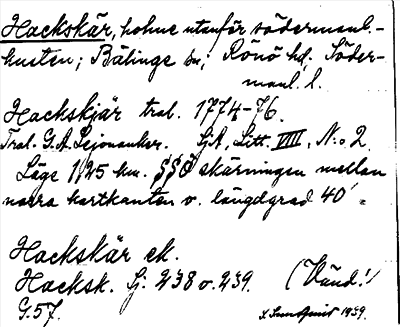 Hackskär, holme utanför södermanl.-
kusten; Bälinge sn; Rönö hd. Söder-
manl. l.
Hackskjär tral. 1774-76.
Tral. G.A. Lejonanker. SjA, Litt. VIII, N:o 2.
Läge 1,25 km. SSÖ skärningen mellan
norra kartkanten o. längdgrad 40'
Hackskär ek.
Hacksk. fj. 238 o. 239. (Vänd!)
G.57. S. Sundqvist 1939.